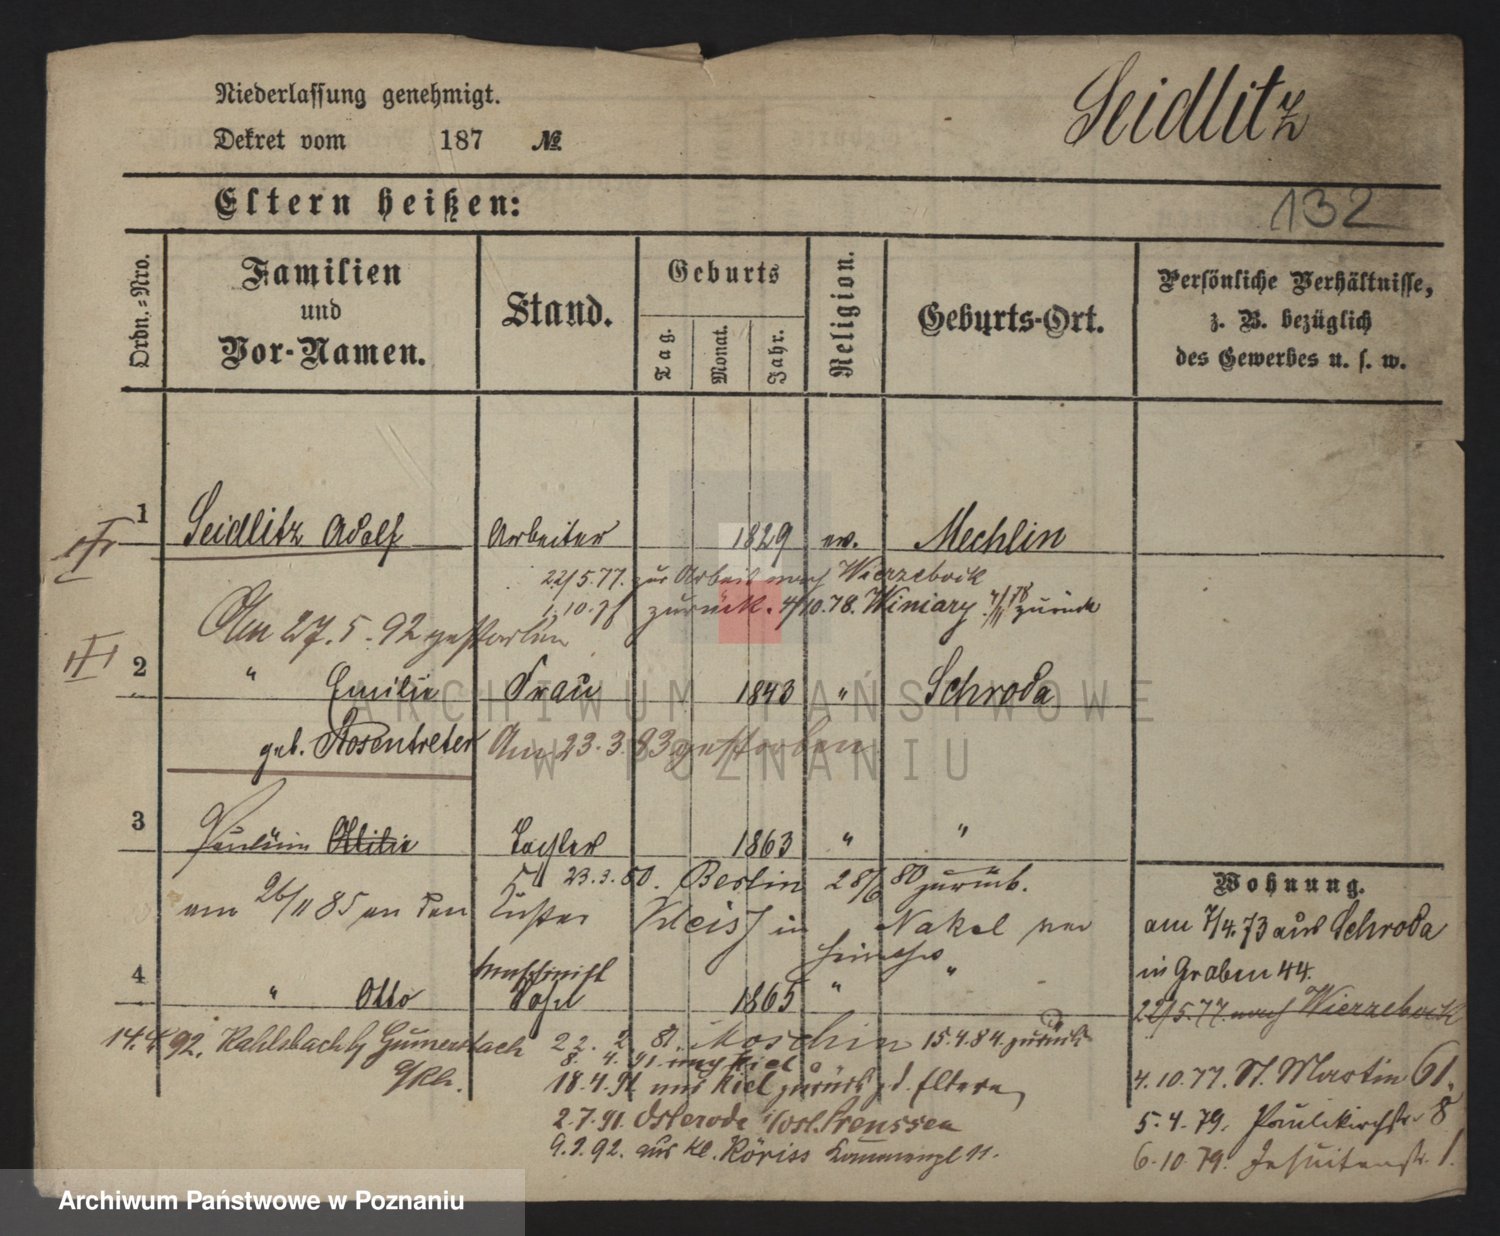 Niederlassung genehmigt.
Dekret vom 187 №
Seidlitz
Eltern heißen:
132
Ordn.-Nro.
Familien und Vor-Namen.
Stand.
Geburts
Tag.
Monat.
Jahr.
Religion.
Geburts-Ort.
Persönliche Verhältnisse,
z. B. bezüglich
des Gewerbes u. s. w.
1 Seidlitz Adolf Arbeiter 1829 ev. Mechlin
22/5.77. zur Arbeit nach Wierzebock
1.10.78 zurück. 4/10.78. Winiary zurück
Am 27.5.92 gestorben
2 " Emilie Frau 1843 " Schroda
geb. Rosentreter Am 23.3.83 gestorben
3 Pauline Ottilie Tochter 1863 " "
23.3.80. Berlin 28/6 80 zurück.
am 26/11 85 an den Küster Kleist in Nakel
4 " Otto Maschinist Sohn 1865 " "
14.4.92. Kahlsbach b/ Gumersbach
a/Rh.
22. 2. 81. Moschin 15.4.84. zurück
8. 4. 91. nach Kiel
18.4.91 aus Kiel zurück z. d. Eltern
2.7.91. Osterode Ost. Preussen
9.2.92. aus Kl. Röriss 11.
Wohnung.
am 7/4.73 aus Schroda
in Graben 44.
22/5.77. nach Wierzebock
4.10.77. St. Martin 61.
5.4.79. Paulikirchstr. 8
6.10.79. Jesuitenstr. 1.
ARCHIWUM PAŃSTWOWE
W POZNANIU
Archiwum Państwowe w Poznaniu